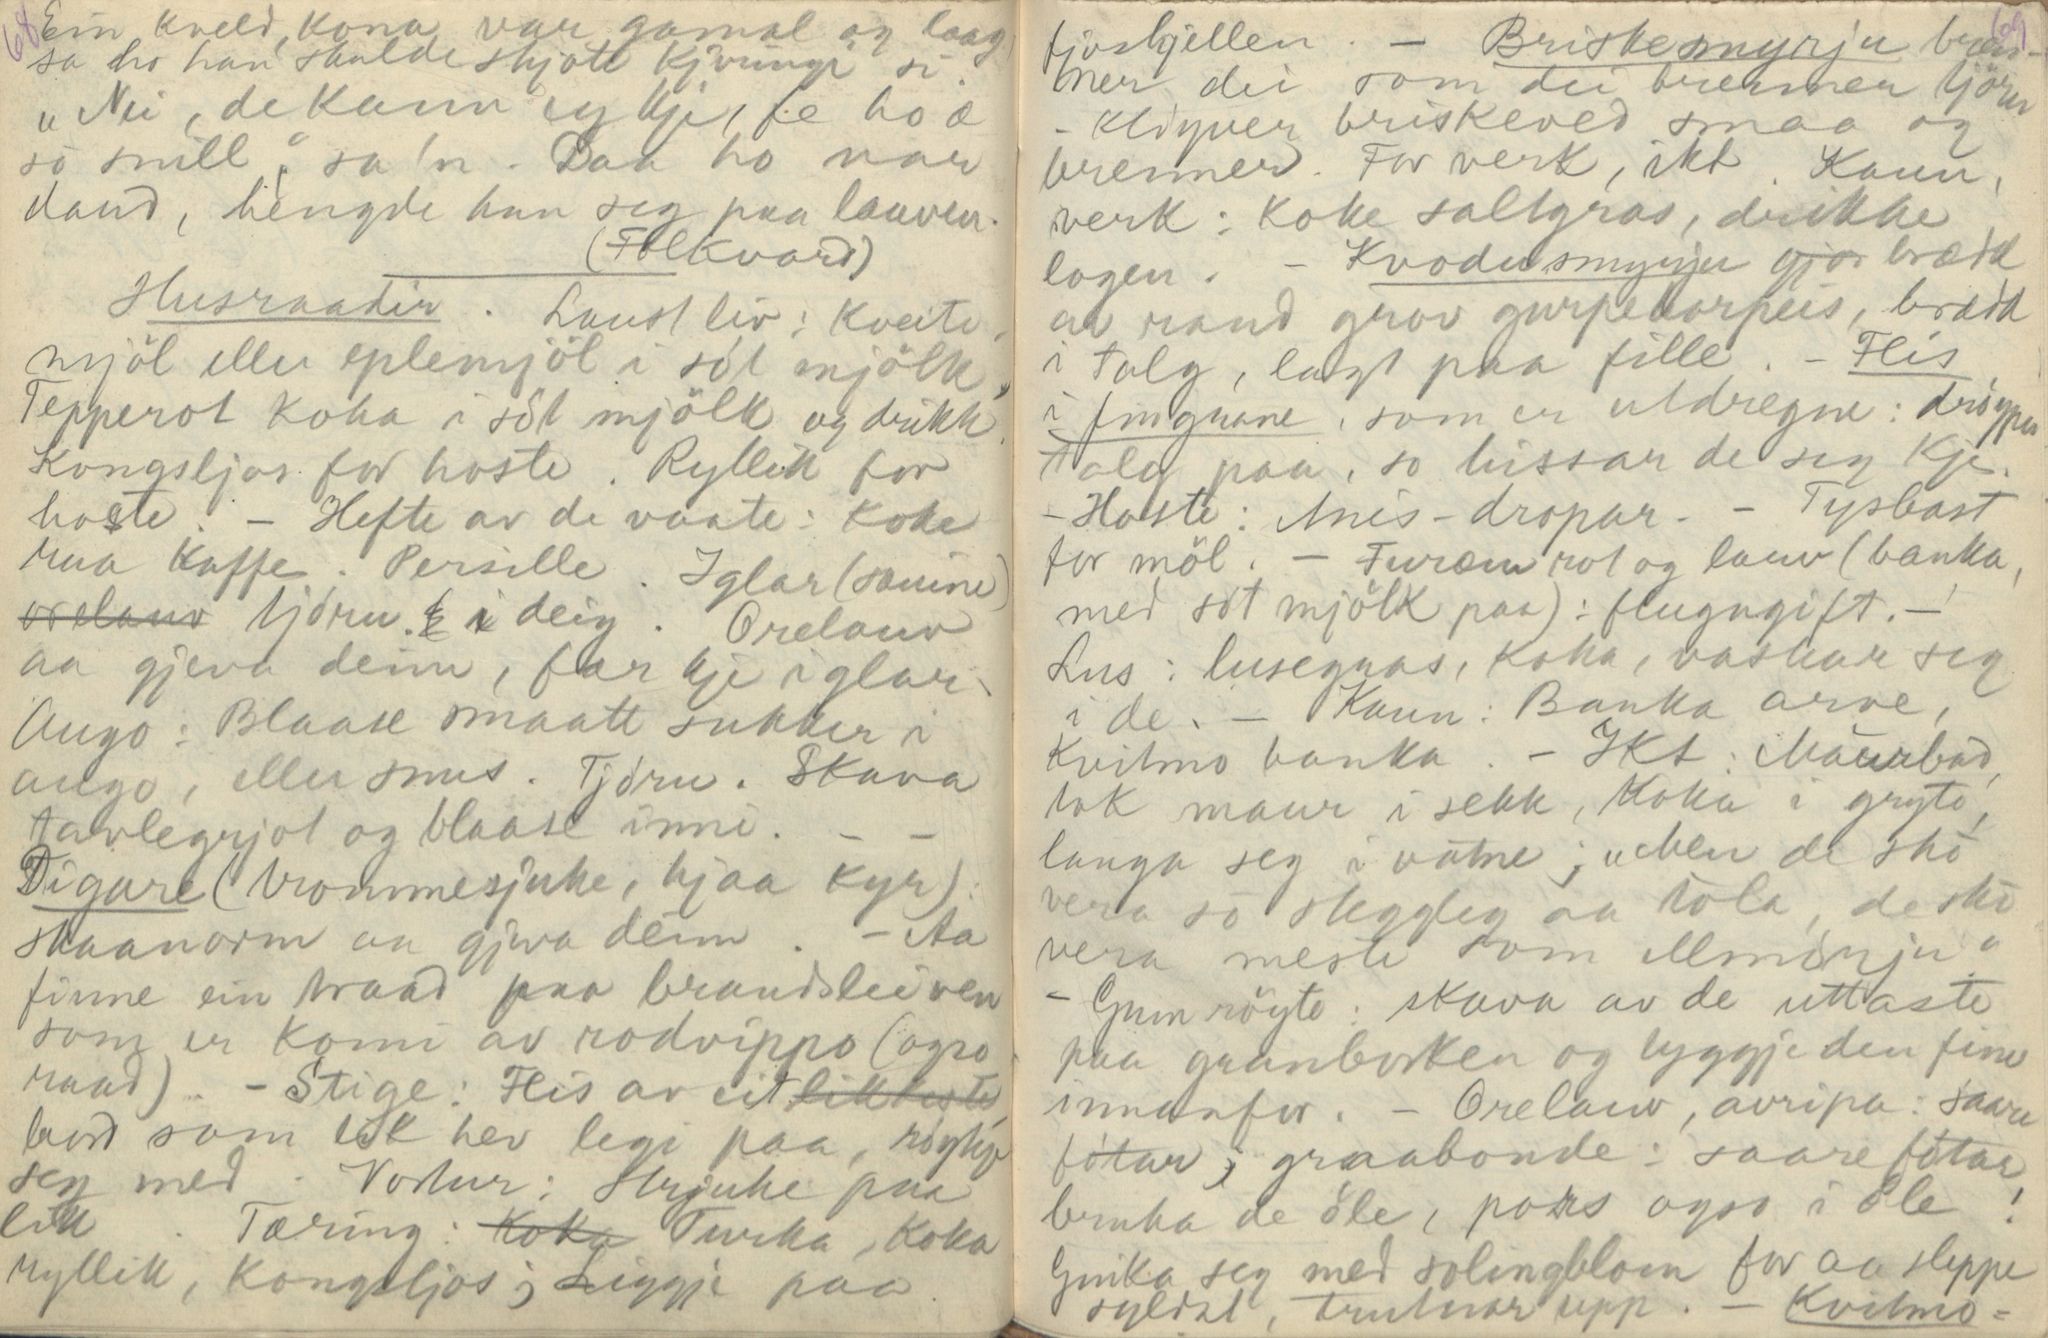 68
Ein kveld, kona var gamal og laag,
sa ho han skulde skjöte kjvinge si.
"Nei, de kann eg kje, fe ho æ
so snill", sa 'n. Daa ho var
daud, hengde han seg paa lauven.
(Folkvard)
Husraadir. Laust liv: Kveite,
mjöl eller eplemjöl i söt mjölk,
Tepperot koka i söt mjölk og drikk.
Kongsljos for hoste. Ryllik for
hoste. - Hefte av de vaate: Koke
rua kaffe. Persille. Iglar (sauine)
orelauv tjöru i deig. Orelauv
aa gjeva deim, fær kje iglar.
Augo: Blaase smaatt sukker i
augo, eller snus. Tjöru. Skava
tavlegrjot og blaase inni. - -
Digare (trommesjuke, hjaa kyr):
skaanorm aa gjeva deim. - Aa
finne ein traad paa brandsleiven
som er komi av rodvippo (ogso
raad). - Stige: Flis av eit likkiste
bord som lik hev legi paa, röykje
seg med. Vortur: Strjuke paa
lik. Tæring: Koka Turka, koka
ryllik, kongsljos; Liggje paa
69
fjoshjellen. - Briskesmyrju bren-
ner dei som dei brenner tjöru
- klöyver briskeved smaa og
brenner. For verk, ikt. Kaun,
verk: koke saltgras, drikke
logen. - Kvodusmyrju gjor brædd
av raud grov gurpekorpeis, brædd
i talg, lagt paa fille. - Flis
i fingrane, som er utdregne: dröyper
talg paa, so hissar de seg kje.
- Hoste: Anis-dropar. - Tysbast
for möl. - Furæmrot og lauv (banka,
med söt mjölk paa): flugugift. -
Lus: lusegras, koka, vaskar seg
i de. - Kaun: Banka arve,
Kvitmo banka. - Ikt: Maurbad,
tok maur i sekk, koka i gryto,
lauga seg i vatne; "Men de sko
vera so steggleg aa tola, de sko
vera meste som ellmörju"
- Gumröyte: skava av de uttaste
paa granborken og tyggje den fine
innanfor. - Orelauv, avripa: saare
fötar; graabonde: saare fötar,
bruka de öle, pors ogso i öle!
Gnika seg med solingblom for aa sleppe
syldst, trutnar upp. - Kvitmo-